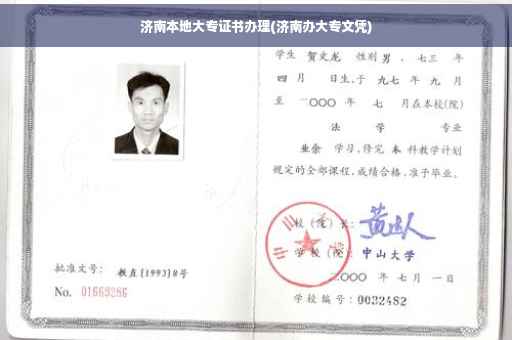 济南本地大专证书办理(济南办大专文凭)
学生 贺文龙 性别 男 、七三 年
四 月 日生,于 九七 年 九 月
至 二〇〇〇 年 七 月在本校(院)
法 学 专业
业余 学习,修完 本 科教学计划
规定的全部课程,成绩合格,准予毕业。
校(院)长:
学校(院): 中山大学
二〇〇〇 年 七 月 一 日
学校编号: 0032482
批准文号: 教直[1993]8号
No. 01669286